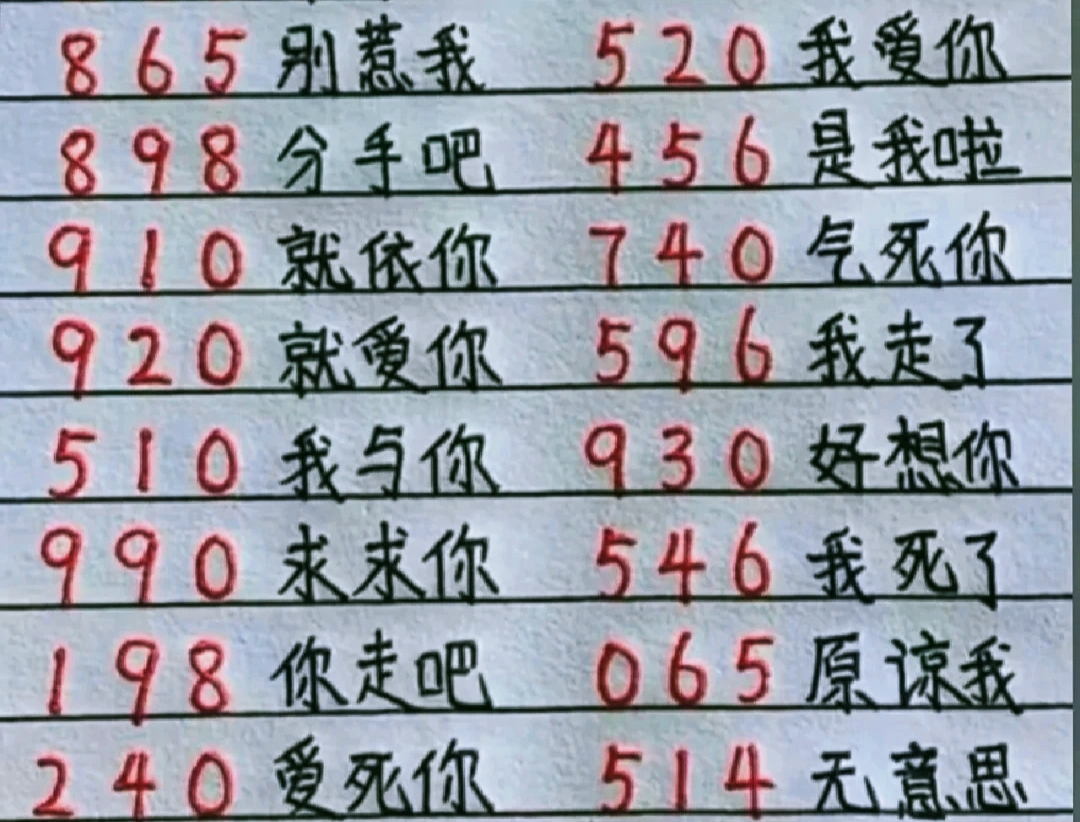 865 别惹我 520 我爱你
898 分手吧 456 是我啦
910 就依你 740 气死你
920 就爱你 596 我走了
510 我与你 930 好想你
990 求求你 546 我死了
198 你走吧 065 原谅我
240 爱死你 514 无意思